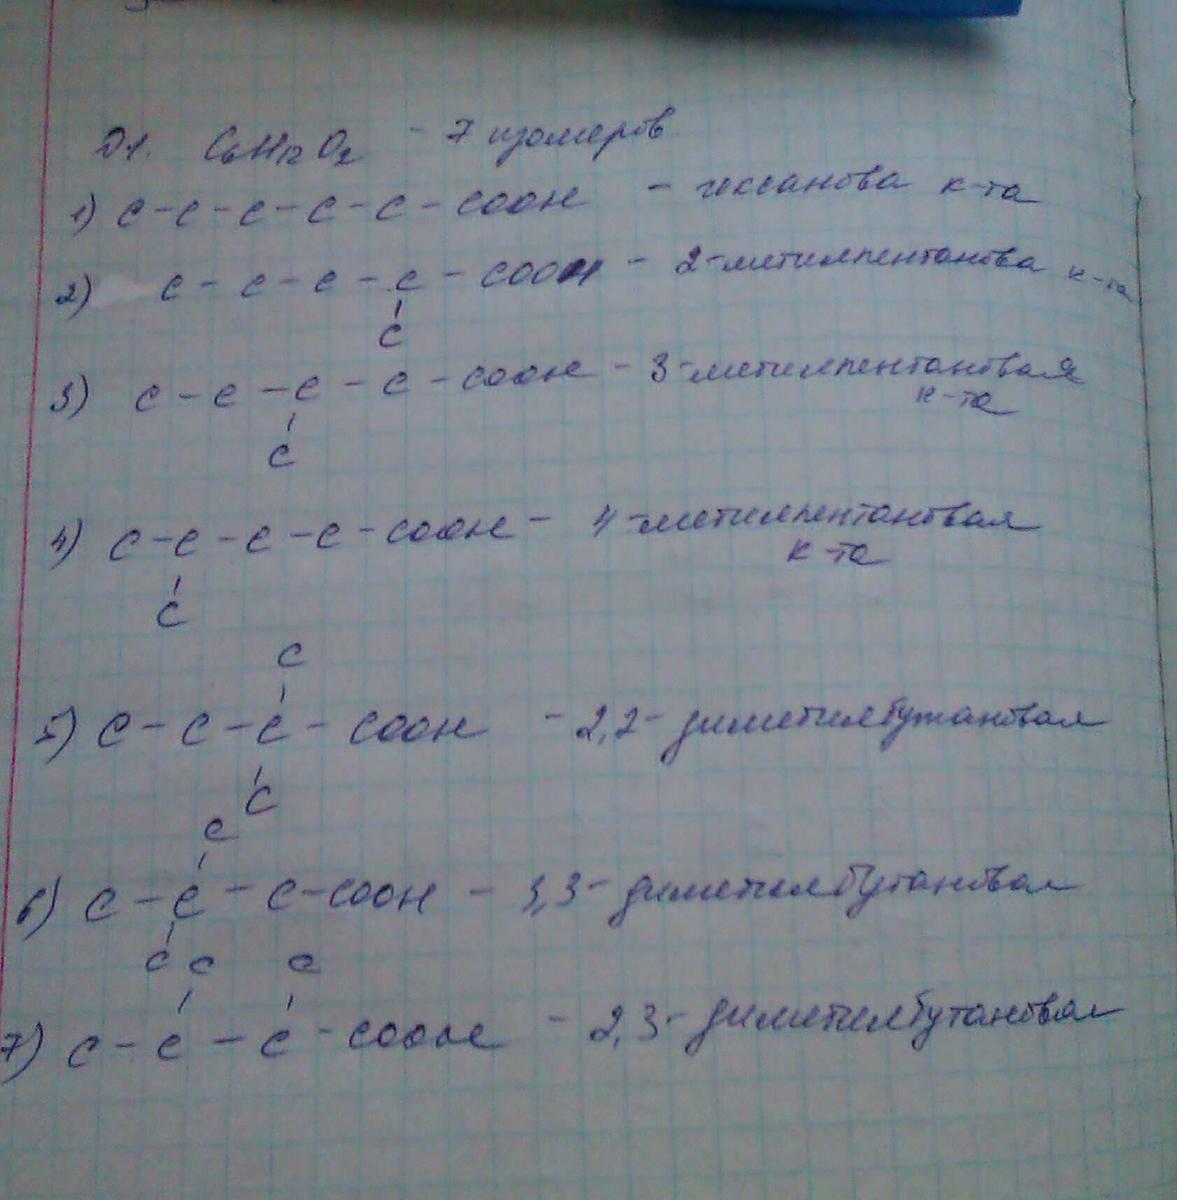 Д1. C6H12O2 - 7 изомеров
1) C - C - C - C - C - COOH - гексанова к-та
2) C - C - C - C - COOH - 2-метилпентанова к-та
C
3) C - C - C - C - COOH - 3-метилпентановая
к-та
C
4) C - C - C - C - COOH - 4-метилпентановая
к-та
C
C
5) C - C - C - COOH - 2,2- диметилбутановая
C
C
6) C - C - C - COOH - 3,3- диметилбутановая
C
C C
7) C - C - C - COOH - 2,3- диметилбутановая